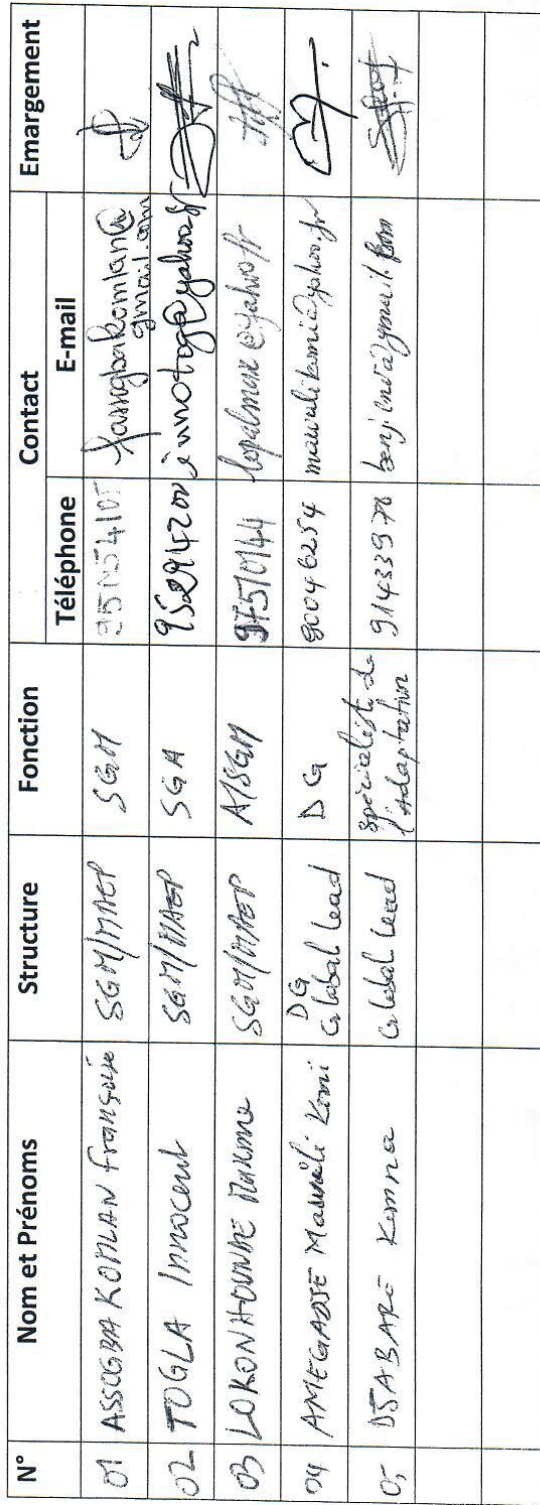 N° Nom et Prénoms Structure Fonction Contact Emargement
Téléphone E-mail
01 ASSOGBA KOMLAN Françoise SGM/MAEP SGM fassogbakomlan@
gmail.com
02 TOGLA Innocent SGM/MAEP SGA 95294200 innotog@yahoo.fr
03 LOKONHOUNDE Maxime SGM/MAEP A/SGM 97510144 lopalmax@yahoo.fr
04 AMEGADJE Mawuli Komi DG
Global Lead DG 90046254 mawulikomi@yahoo.fr
05 DJABARE Komna Global Lead Spécialiste de
l'Adaptation 91433978